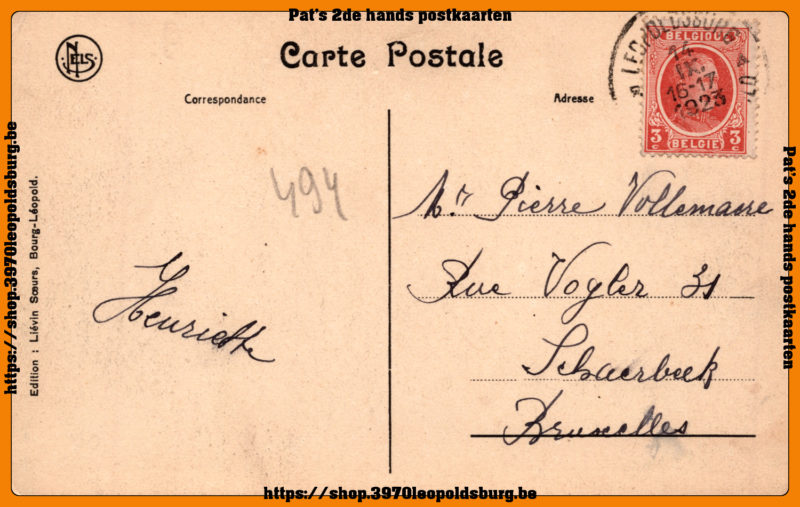 Pat's 2de hands postkaarten
NELS
Carte Postale
Correspondance
Adresse
LEOPOLDSBURG
14
IX.
16-17
1923
BELGIQUE
3 c
BELGIË
3 c
494
Mr Pierre Vollemaere
Rue Vogler 31
Schaerbeek
Bruxelles
Henriette
Edition : Liévin Sœurs, Bourg-Léopold.
https://shop.3970leopoldsburg.be
Pat's 2de hands postkaarten
https://shop.3970leopoldsburg.be